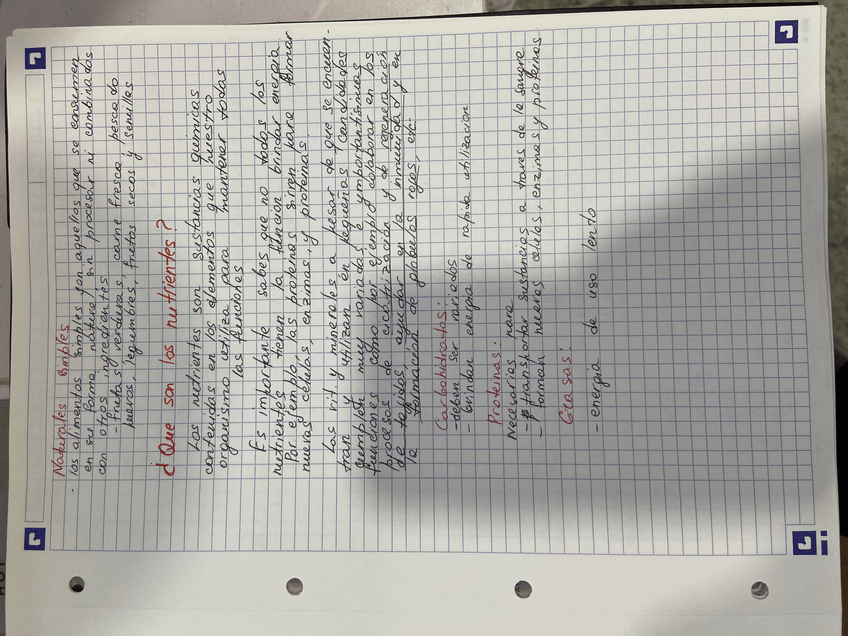 Naturales simples
- los alimentos simples son aquellos que se consumen
en su forma natural, sin procesar ni combinados
con otros ingredientes
- frutas, verduras, carne fresca, pescado
huevos, legumbres, frutos secos y semillas
¿Que son los nutrientes?
Los nutrientes son sustancias quimicas
contenidas en los alimentos que nuestro
organismo utiliza para mantener todas
las funciones
Es importante sabes que no todos los
nutrientes tienen la funcion brindar energia.
Por ejemplo, las proteinas sirven para formar
nuevas celulas, enzimas, y proteinas.
Las vit. y minerales a pesar de que se encuen-
tran y utilizan en pequeñas cantidades
cumplen muy variadas e importantisimas
funciones como por ejemplo colaborar en los
procesos de cicatrización y de regeneración
de tejidos, ayudar en la inmunidad y en
la formación de globulos rojos, etc.
Carbohidratos:
- deben ser variados
- brindan energia de rapida utilizacion
Proteinas:
Necesarias para
- transportar sustancias a traves de la sangre
- formar nuevas celulas, enzimas y proteinas
Grasas:
- energia de uso lento